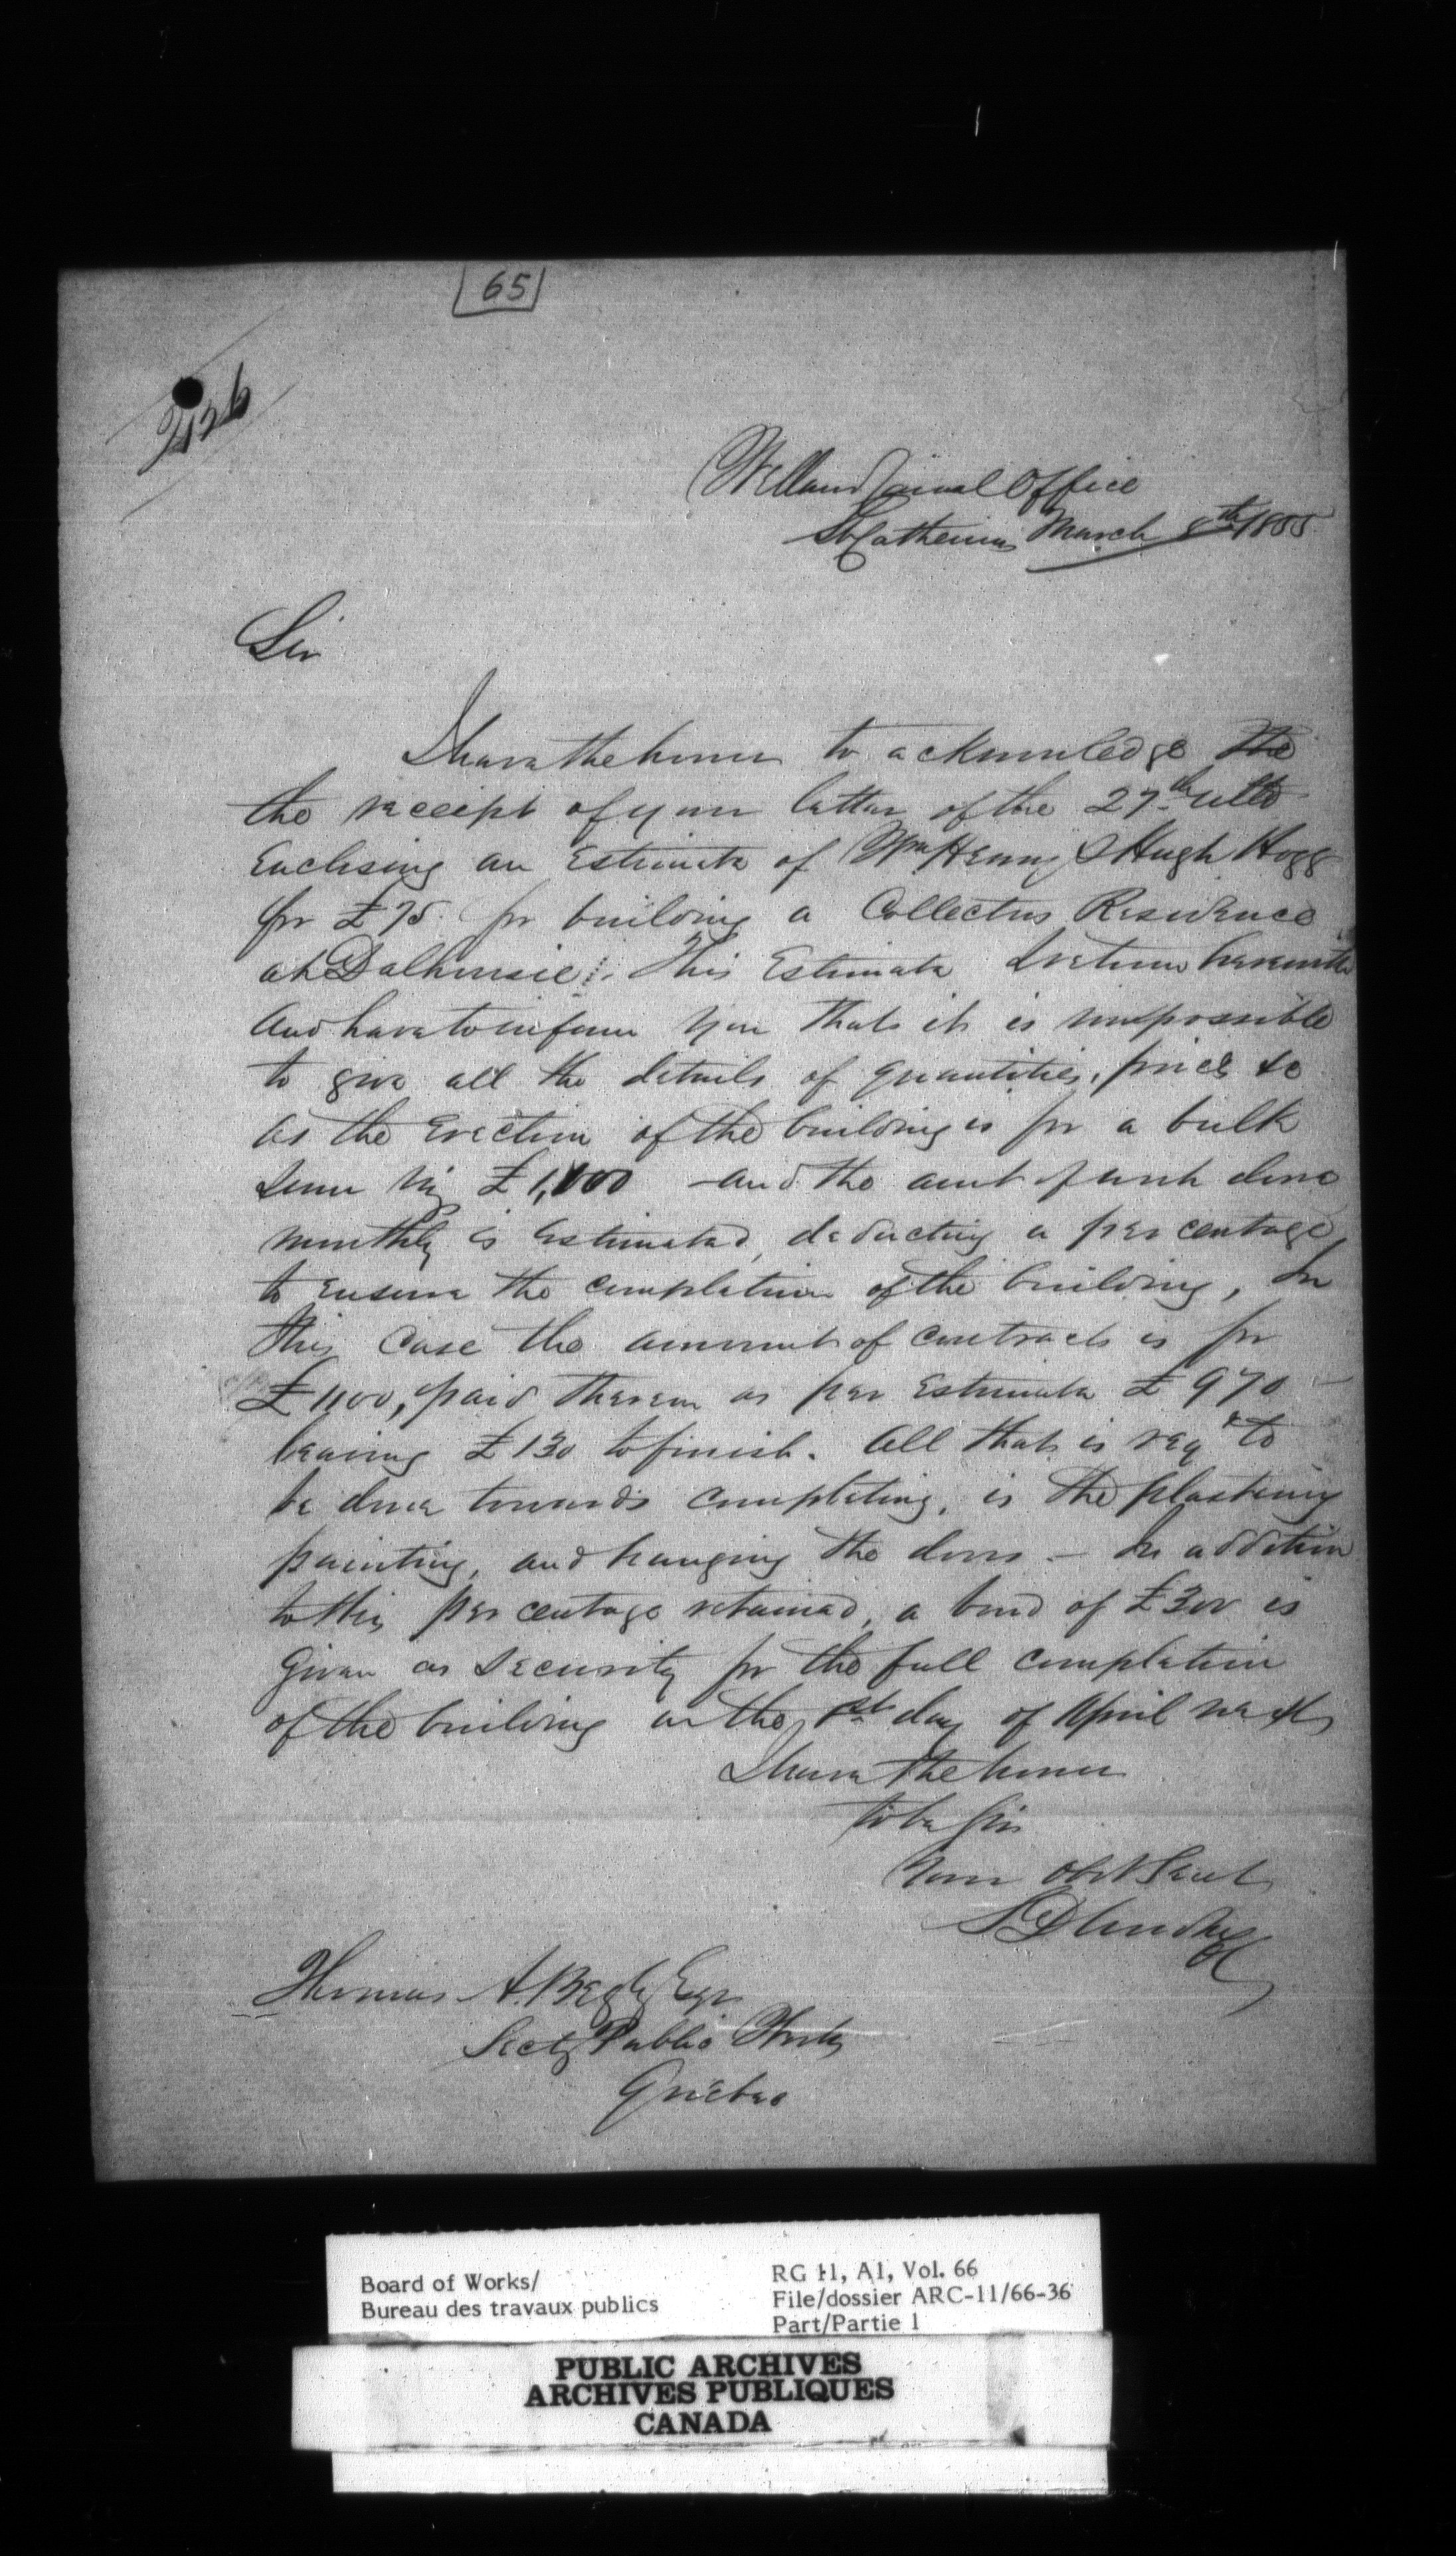 65
Welland Canal Office
St Catherines March 8th 1855
Sir
I have the honor to acknowledge the
the receipt of your letter of the 27th ulto
Enclosing an Estimate of Wm Henry & Hugh Hogg
for £75 for building a Collectors Residence
at Dalhousie. This Estimate I return herewith
and have to inform you that it is impossible
to give all the details of quantities, prices &c
as the Erection of the building is for a bulk
sum viz £1,100 - and the amt of work done
monthly is Estimated, deducting a per centage
to ensure the completion of the building, In
this case the amount of contract is for
£1100, paid thereon as per Estimate £970 -
leaving £130 to finish. All that is reqd to
be done towards completing, is the plastering
painting, and hanging the doors - In addition
to this per centage retained, a bond of £300 is
given as security for the full completion
of the building on the 1st day of April next
I have the honor
to be Sir
Your obt Servt
Thomas A. Begly Esqr
Secty Public Works
Quebec
Board of Works/
Bureau des travaux publics
RG 11, A1, Vol. 66
File/dossier ARC-11/66-36
Part/Partie 1
PUBLIC ARCHIVES
ARCHIVES PUBLIQUES
CANADA